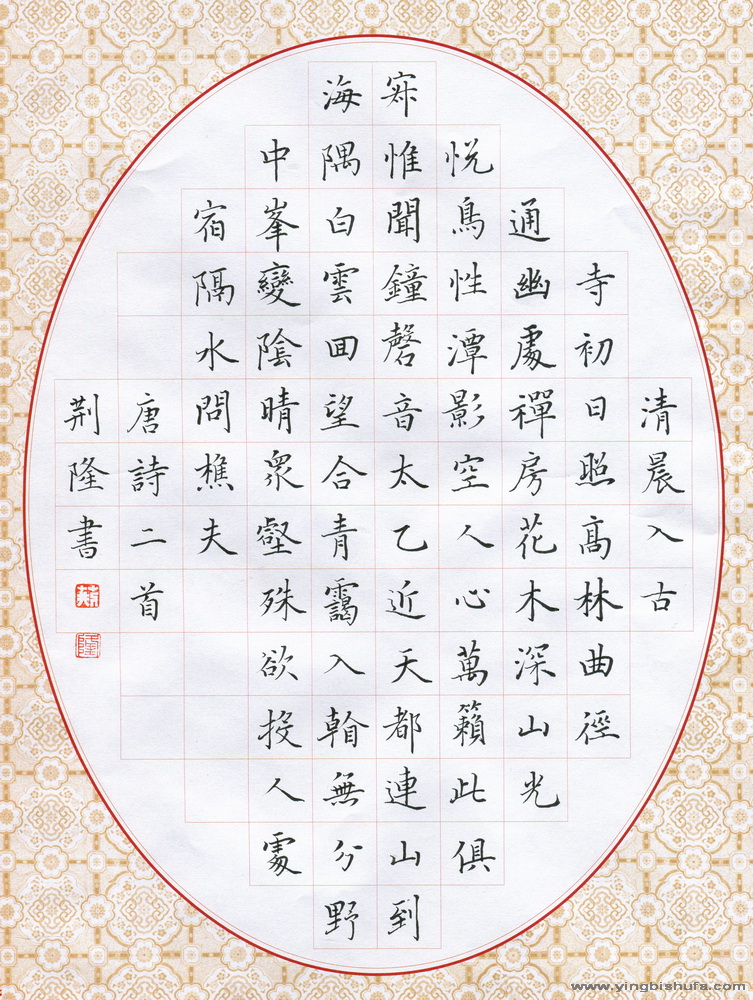 清晨入古
寺初日照高林曲徑
通幽處禪房花木深山光
悅鳥性潭影空人心萬籟此俱
寂惟聞鐘磬音太乙近天都連山到
海隅白雲回望合青靄入看無分野
中峯變陰晴眾壑殊欲投人處
宿隔水問樵夫
唐詩二首
荆隆書
隆
www.yingbishufa.com